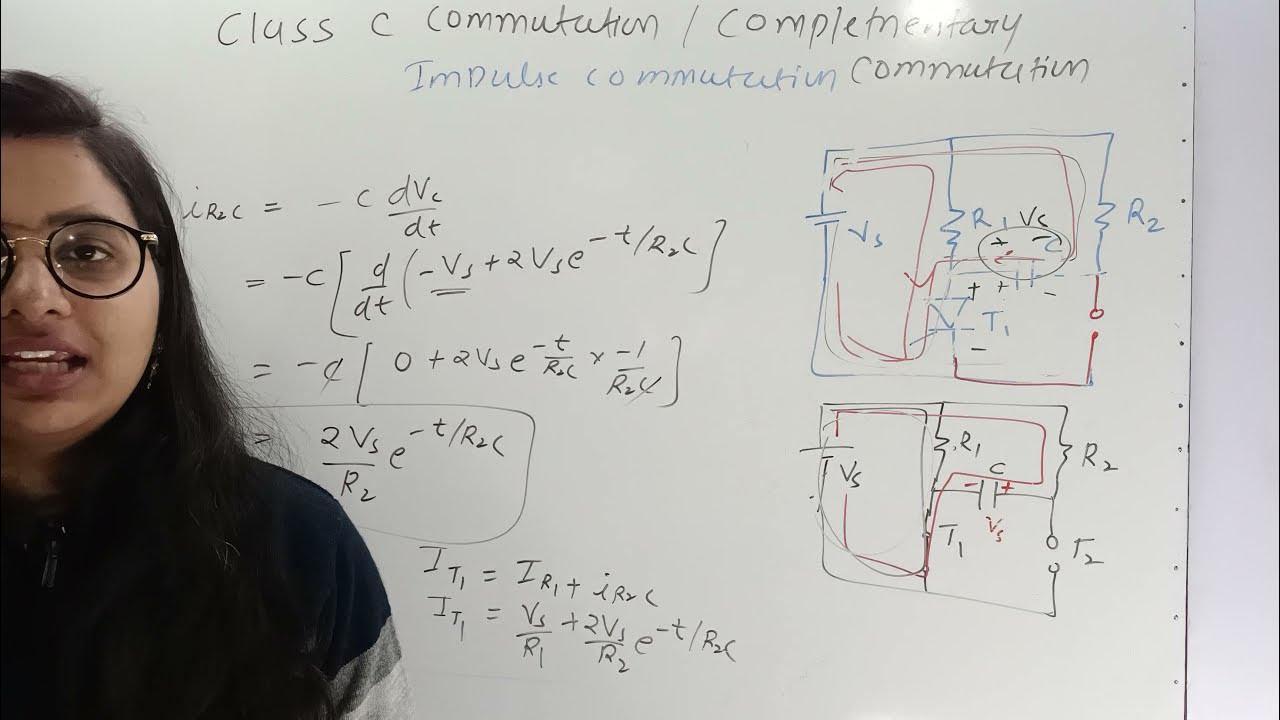 Class C Commutation / Complementary
Impulse commutation Commutation
iR₂C = - C dVc/dt
= -C [ d/dt ( -Vs + 2Vs e^-t/R₂C ]
= -C [ 0 + 2Vs e^-t/R₂C × -1/R₂C ]
= 2Vs/R₂ e^-t/R₂C
I_T₁ = I_R₁ + iR₂C
I_T₁ = Vs/R₁ + 2Vs/R₂ e^-t/R₂C
Vs
R1
Vs
+ -
C
R2
+ + -
T1
-
Vs
R1
C
- +
Vs
R2
T1
T2